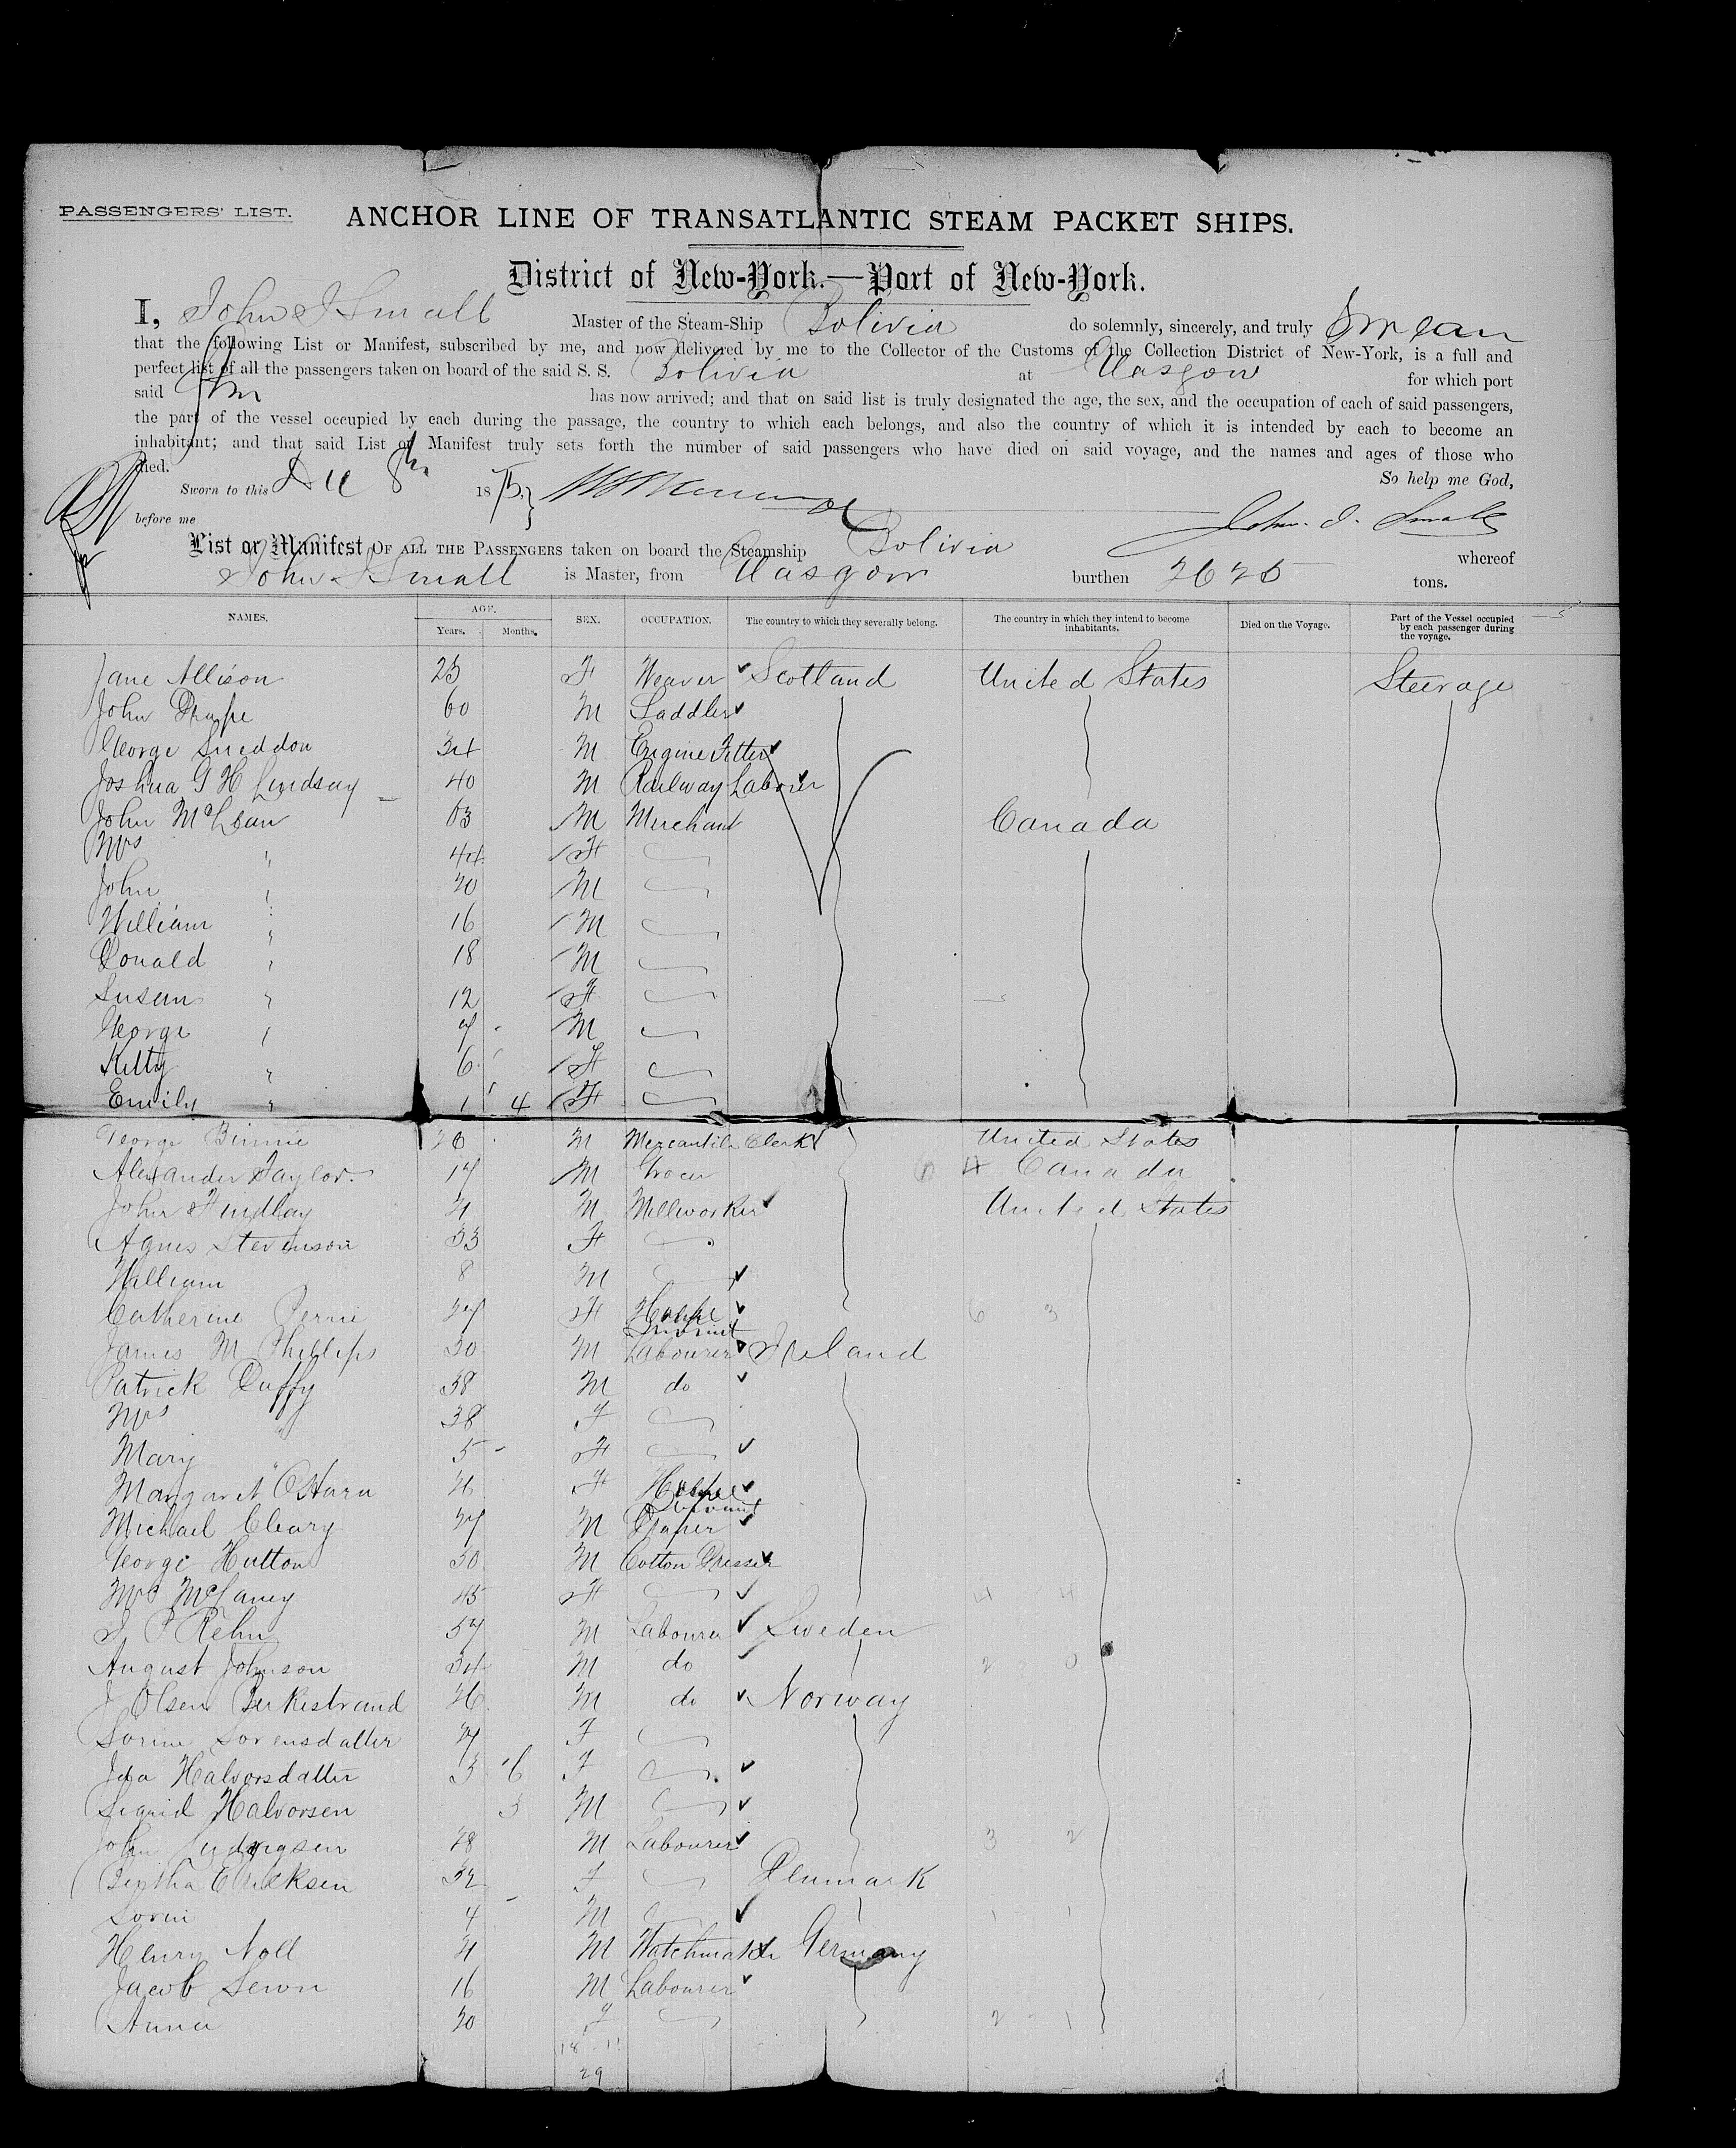 PASSENGERS' LIST.
ANCHOR LINE OF TRANSATLANTIC STEAM PACKET SHIPS.
District of New-York.—Port of New-York.
I, John J Small Master of the Steam-Ship Bolivia do solemnly, sincerely, and truly Swear
that the following List or Manifest, subscribed by me, and now delivered by me to the Collector of the Customs of the Collection District of New-York, is a full and
perfect list of all the passengers taken on board of the said S. S. Bolivia at Glasgow for which port
said has now arrived; and that on said list is truly designated the age, the sex, and the occupation of each of said passengers,
the part of the vessel occupied by each during the passage, the country to which each belongs, and also the country of which it is intended by each to become an
inhabitant; and that said List or Manifest truly sets forth the number of said passengers who have died on said voyage, and the names and ages of those who
died. So help me God,
Sworn to this Dec 8th 1875
before me John. J. Small
List or Manifest OF ALL THE PASSENGERS taken on board the Steamship Bolivia whereof
John J Small is Master, from Glasgow burthen 2625 tons.
NAMES. AGE. Years. Months. SEX. OCCUPATION. The country to which they severally belong. The country in which they intend to become inhabitants. Died on the Voyage. Part of the Vessel occupied by each passenger during the voyage.
Jane Allison 25 F Weaver Scotland United States Steerage
John Sharpe 60 M Saddler
George Sneddon 34 M Engine Fitter
Joshua G H Lindsay 40 M Railway Laborer
John McLean 63 M Merchant Canada
Mrs " 44 F
John " 20 M
William " 16 M
Donald " 18 M
Susan " 12 F
George " 7 M
Kitty " 6 F
Emily " 1 4 F
George Binnie 26 M Mercantile Clerk United States
Alexander Taylor 17 M Grocer Canada
John Findlay 21 M Millworker United States
Agnes Stevenson 33 F
William 8 M
Catherine 27 F House Servant 6 3
James M Phillips 30 M Labourer Ireland
Patrick Duffy 38 M do
Mrs " 38 F
Mary " 5 F
Margaret OHara 26 F House Servant
Michael Cleary 27 M Draper
George Hutton 30 M Cotton Dresser
Mrs 45 F 4 4
J P Rehn 57 M Labourer Sweden
August Johnson 34 M do 2 0
J Olsen Birkestrand 26 M do Norway
Sorine Sorensdatter 27 F
Ida Halvorsdatter 3 6 F
Sigrid Halvorsen 3 M
John Ludvigsen 28 M Labourer 3 2
Bertha Ericksen 32 F Denmark
Soren 4 M 1 1
Henry Noll 21 M Watchmaker Germany
Jacob 16 M Labourer
Anna 20 F 2 1
18 11
29